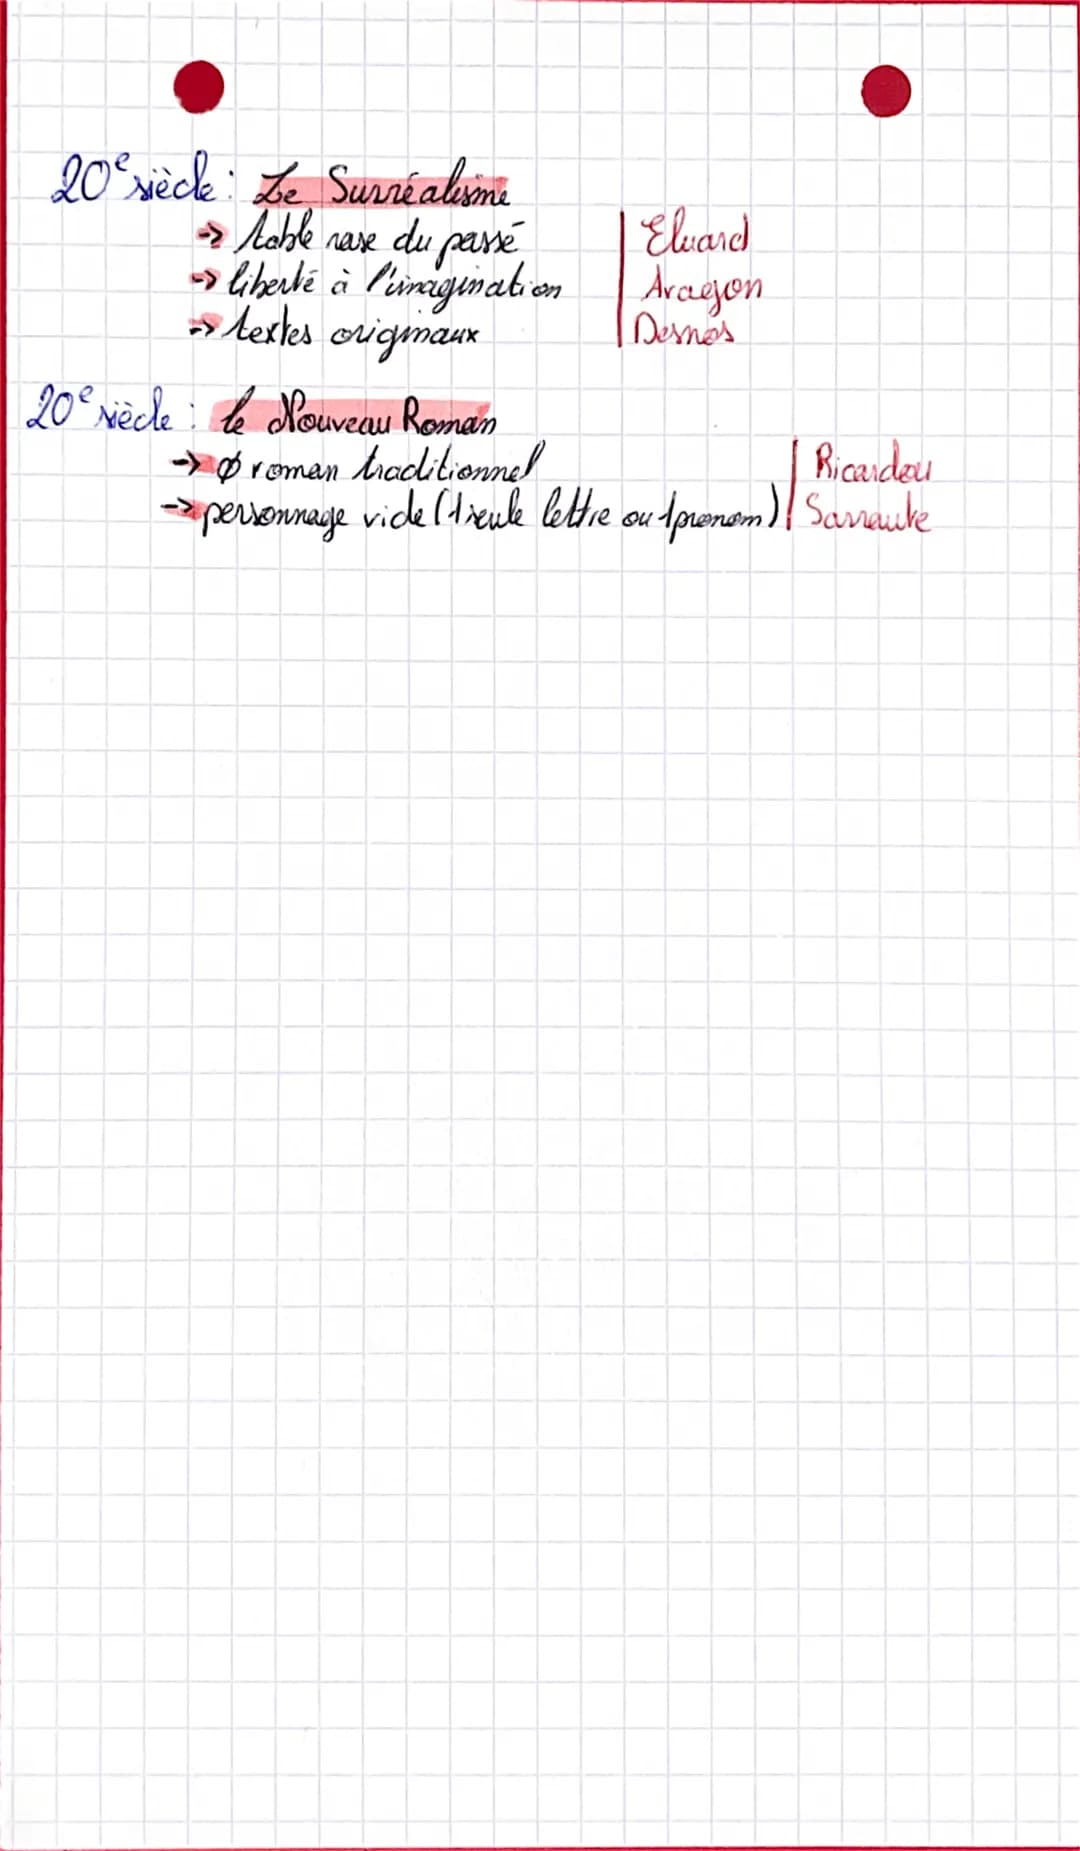 20e siècle : Le Surréalisme
-> table rase du passé
-> liberté à l'imagination
-> textes originaux
Eluard
Aragon
Desnos
20e siècle : le Nouveau Roman
-> Ø roman traditionnel
-> personnage vide (1 seule lettre ou 1 pronom)
Ricardou
Sarraute